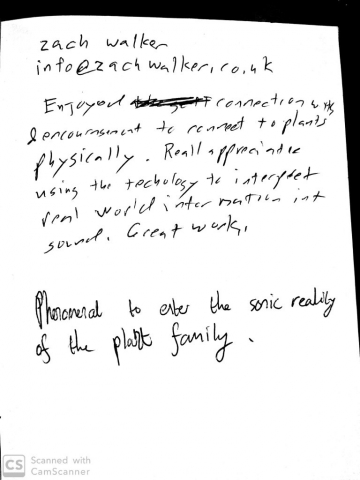 zach walker
info@zachwalker.co.uk
Enjoyed connection with
& encournsment to connect to plants
physically. Reall appreciate
using the techology to interpret
real world information int
sound. Great work.
Phenomenal to enter the sonic reality
of the plant family.
CS Scanned with
CamScanner